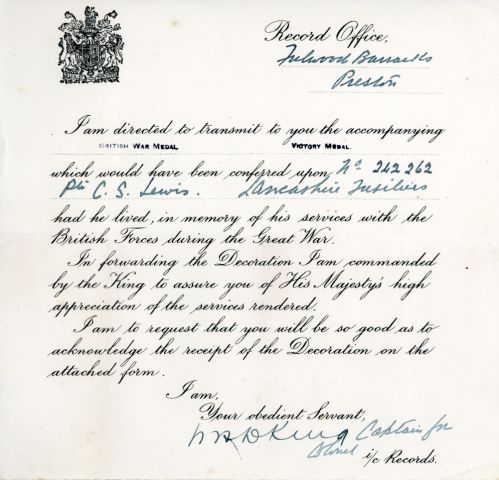 Record Office,
Fulwood Barracks
Preston
I am directed to transmit to you the accompanying
BRITISH WAR MEDAL VICTORY MEDAL
which would have been conferred upon No 242262
Pte C. S. Lewis. Lancashire Fusiliers
had he lived, in memory of his services with the
British Forces during the Great War.
In forwarding the Decoration I am commanded
by the King to assure you of His Majesty's high
appreciation of the services rendered.
I am to request that you will be so good as to
acknowledge the receipt of the Decoration on the
attached form.
I am,
Your obedient Servant,
King Captain for
Colonel
i/c Records.